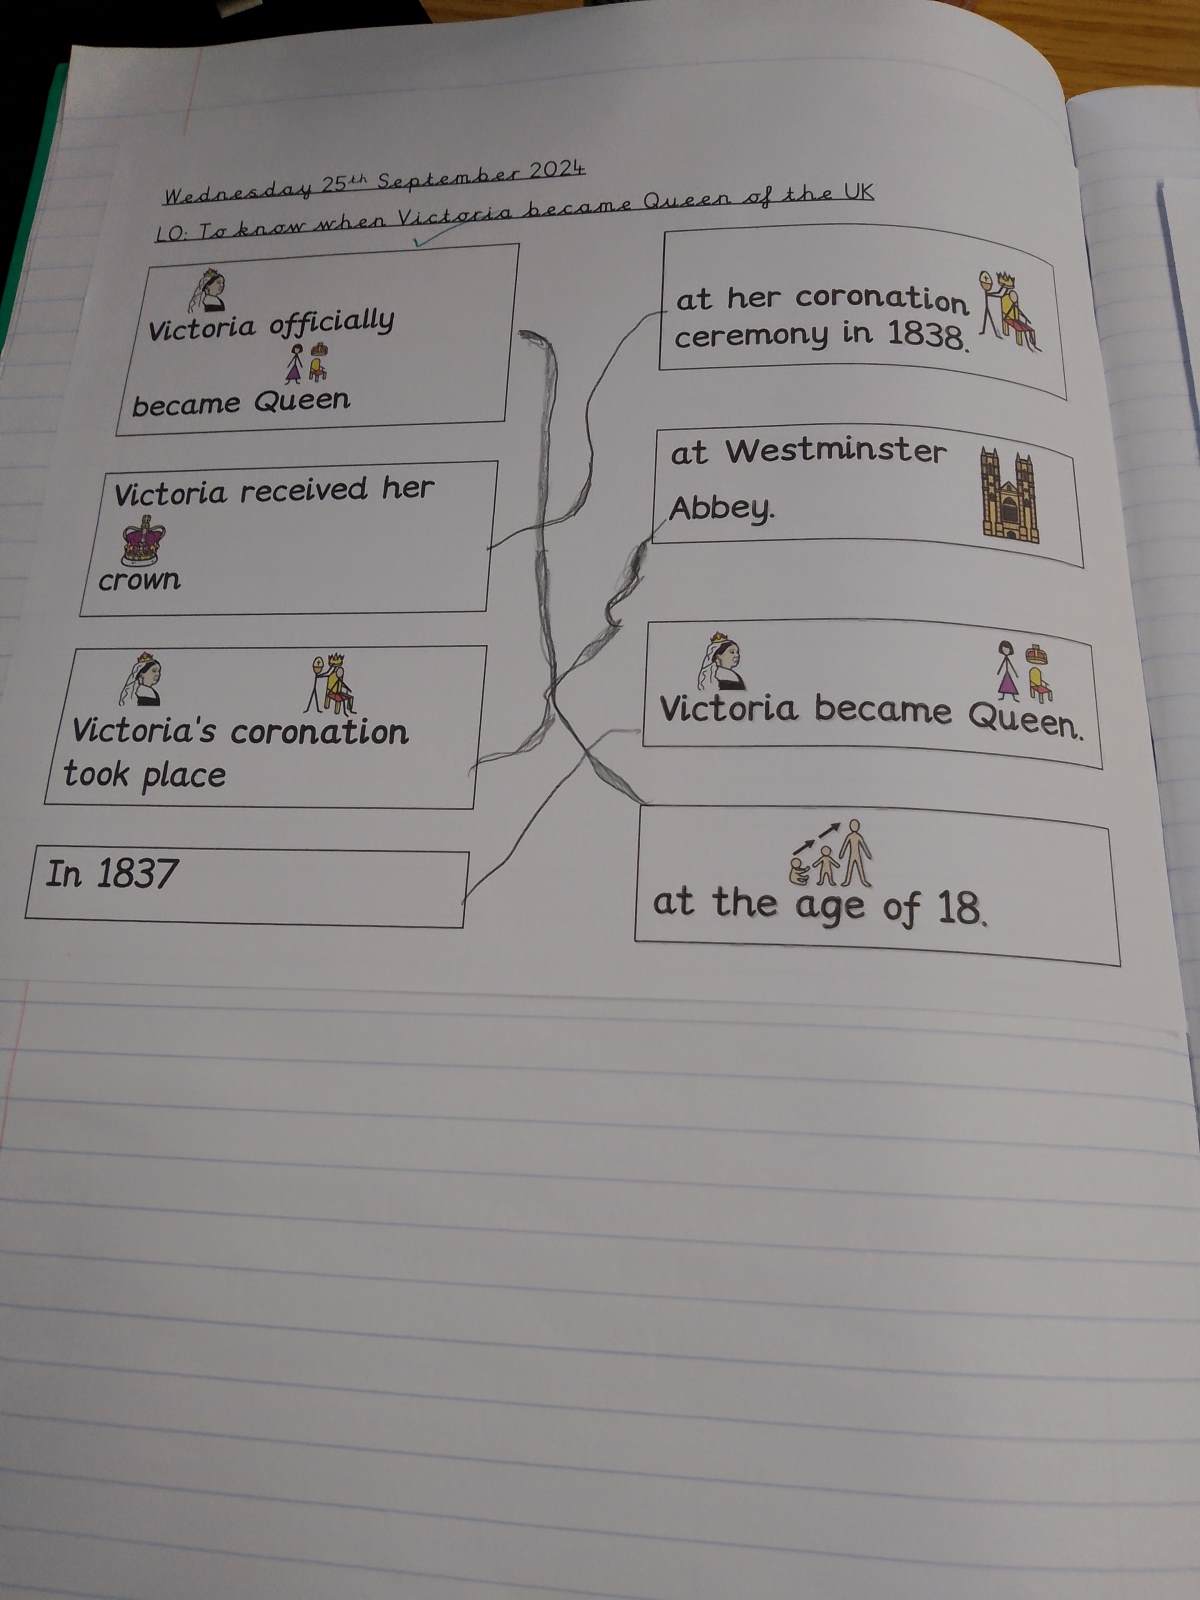 Wednesday 25th September 2024
LO: To know when Victoria became Queen of the UK
Victoria officially
became Queen
Victoria received her
crown
Victoria's coronation
took place
In 1837
at her coronation
ceremony in 1838.
at Westminster
Abbey.
Victoria became Queen.
at the age of 18.